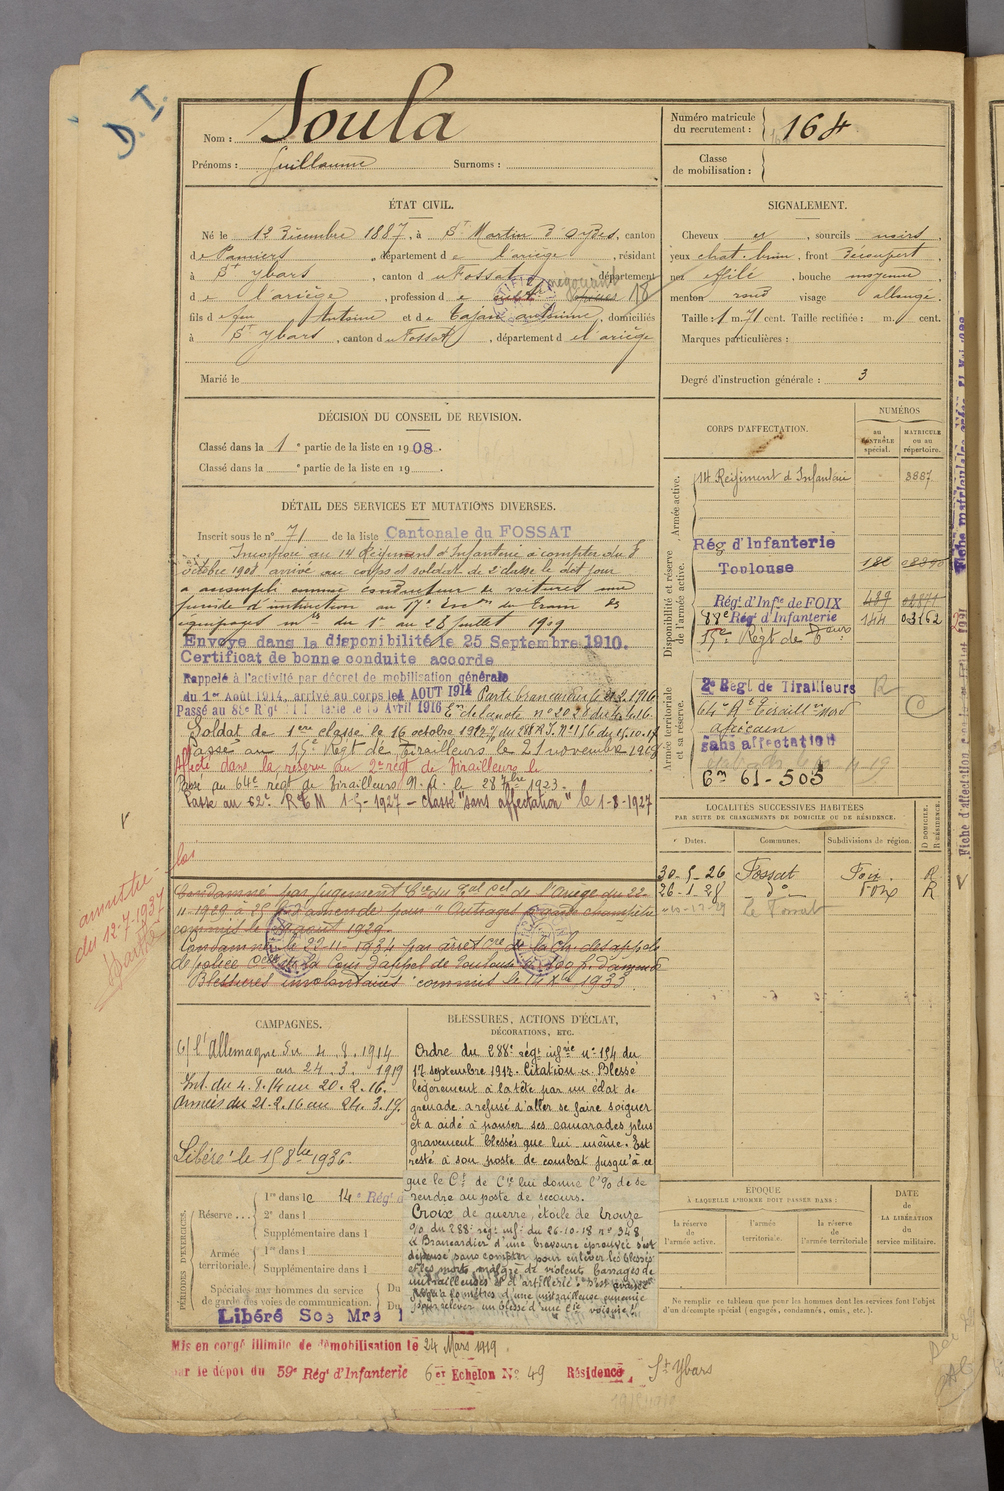 D. I.
Nom : Soula
Prénoms : Guillaume Surnoms :
Numéro matricule du recrutement : 164
Classe de mobilisation :
ÉTAT CIVIL.
Né le 12 Décembre 1887, à St Martin d'Oydes, canton
de Pamiers, département de l'ariège, résidant
à St Ybars, canton du Fossat, département
de l'ariège, profession de négociant 18
fils de feu Antoine et de Cajan antoinine, domiciliés
à St Ybars, canton du Fossat, département de l'ariège
Marié le
SIGNALEMENT.
Cheveux et, sourcils noirs,
yeux chat. brun, front Découvert,
nez effilé, bouche moyenne
menton rond visage allongé
Taille : 1 m. 71 cent. Taille rectifiée : m. cent.
Marques particulières :
Degré d'instruction générale : 3
DÉCISION DU CONSEIL DE REVISION.
Classé dans la 1e partie de la liste en 1908.
Classé dans la e partie de la liste en 19 .
DÉTAIL DES SERVICES ET MUTATIONS DIVERSES.
Inscrit sous le n° 71 de la liste Cantonale du FOSSAT
Incorporé au 14 Régiment d'Infanterie à compter du 8
octobre 1908 arrivé au corps et soldat de 2e classe le dit jour
a accompli comme conducteur de voitures une
période d'instruction au 17e Eson du Train des
équipages mres du 1er au 28 juillet 1909
Envoyé dans la disponibilité le 25 Septembre 1910.
Certificat de bonne conduite accordé
Rappelé à l'activité par décret de mobilisation générale
du 1er Août 1914, arrivé au corps le 4 AOUT 1914 Parti brancardier le 21.2.1916
Passé au 88e Régt d'Infanterie le 15 Avril 1916 En de la note n° 2028 du
Soldat de 1ere classe le 16 octobre 1917 du C R.I. N° 156 du 15.10.17
Passé au 15e Régt de Tirailleurs le 21 novembre
Affecté dans la réserve au 2e régt de Tirailleurs le
Passé au 64e régt de Tirailleurs N. A. le 28 7bre 1923.
Passé au 62e R T M 1-5-1927 - classé "sans affectation" le 1-8-1927
loi
amnistie
du 12-7-1937
Condamné par jugement Cel du Tal cel de l'Ariège du 22-
11-1929 à 25 f d'amende pour "Outrages à garde champêtre
commis le août 1929.
Condamné le 22-11-1934 par arrêt de la Ch. des appels
de police Celle de la Cour d'appel de Toulouse à 100 f. d'amende
Blessures involontaires commis le 14 Xbre 1933
CORPS D'AFFECTATION.
NUMÉROS
au contrôle spécial.
MATRICULE ou au répertoire.
Armée active.
14 Régiment d'Infanterie 3887
Disponibilité et réserve de l'armée active.
Rég d'Infanterie
Toulouse
Régt d'Infie de FOIX 489
88e Rég d'Infanterie 144 03162
15e Régt de Teurs
Armée territoriale et sa réserve.
2e Régt de Tirailleurs
64e Rt Tiraill. Nord
africain
Sans affectation
Cn 61-505
LOCALITÉS SUCCESSIVES HABITÉES
PAR SUITE DE CHANGEMENTS DE DOMICILE OU DE RÉSIDENCE.
Dates. Communes. Subdivisions de région. D DOMICILE. R RÉSIDENCE.
30-5-26 Fossat Foix. R
26-1-28 do Foix R
10-12-29 Le Fossat
CAMPAGNES.
C/ l'Allemagne du 4.8.1914
au 24.3.1919
Int. du 4.8.14 au 20.2.16.
Armées du 21-2.16 au 24.3.19.
Libéré le 15 8bre 1936
BLESSURES, ACTIONS D'ÉCLAT,
DÉCORATIONS, ETC.
Ordre du 288e régt infrie n° 194 du
17 septembre 1917. Citation « Blessé
légèrement à la tête par un éclat de
grenade a refusé d'aller se faire soigner
et a aidé à panser ses camarades plus
gravement blessés que lui-même. Est
resté à son poste de combat jusqu'à ce
que le Ct de Cie lui donne l'o/ de se
rendre au poste de secours.
Croix de guerre, étoile de bronze
o/o du 288e régt inf. du 26-10-18 n° 348
« Brancardier d'une bravoure éprouvée s'est
dépensé sans compter pour enlever les blessés
et les morts malgré de violents barrages de
mitrailleuses et d'artillerie. S'est avancé
jusqu'à mètres d'une mitrailleuse ennemie
pour relever un blessé d'une Cie voisine »
PÉRIODES D'EXERCICES.
Réserve... 1re dans le 14e Rég d
2e dans l
Supplémentaire dans l
Armée territoriale. 1re dans l
Supplémentaire dans l
Spéciales aux hommes du service de garde des voies de communication. Du
Du
Libéré Sce Mre
ÉPOQUE
À LAQUELLE L'HOMME DOIT PASSER DANS :
la réserve de l'armée active.
l'armée territoriale.
la réserve de l'armée territoriale
DATE DE LA LIBÉRATION du service militaire.
Ne remplir ce tableau que pour les hommes dont les services font l'objet
d'un décompte spécial (engagés, condamnés, omis, etc.).
Mis en congé illimité de démobilisation le 24 Mars 1919.
par le dépôt du 59e Rég d'Infanterie 6er Echelon No 49 Résidence St Ybars